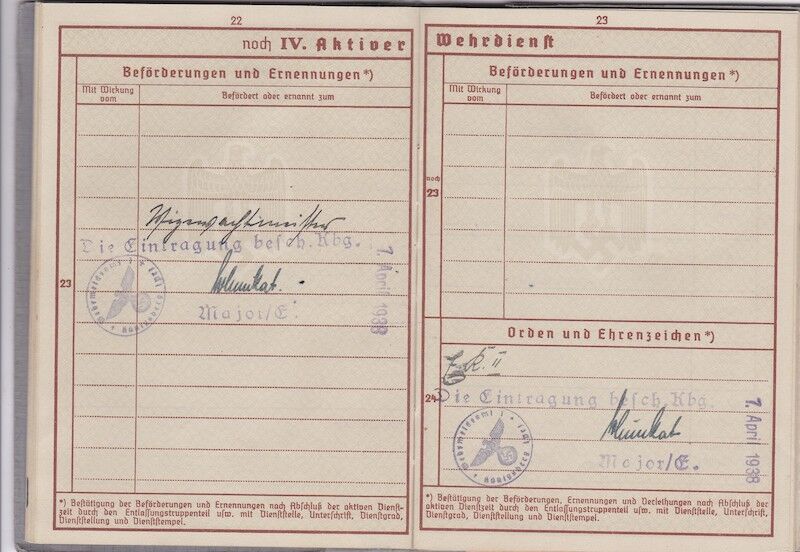 22
noch IV. Aktiver
Beförderungen und Ernennungen*)
Mit Wirkung vom
Befördert oder ernannt zum
Vizewachtmeister
Die Eintragung besch. Kbg.
23
7. April 1938
Major/E.
*) Bestätigung der Beförderungen und Ernennungen nach Abschluß der aktiven Dienst-
zeit durch den Entlassungstruppenteil usw. mit Dienststelle, Unterschrift, Dienstgrad,
Dienststellung und Dienststempel.
23
Wehrdienst
Beförderungen und Ernennungen*)
Mit Wirkung vom
Befördert oder ernannt zum
noch
23
Orden und Ehrenzeichen*)
E.K. II
24
Die Eintragung besch. Kbg.
7. April 1938
Wehrmeldeamt 1 (Königsberg (Pr)
Major/E.
*) Bestätigung der Beförderungen, Ernennungen und Verleihungen nach Abschluß der
aktiven Dienstzeit durch den Entlassungstruppenteil usw. mit Dienststelle, Unterschrift,
Dienstgrad, Dienststellung und Dienststempel.